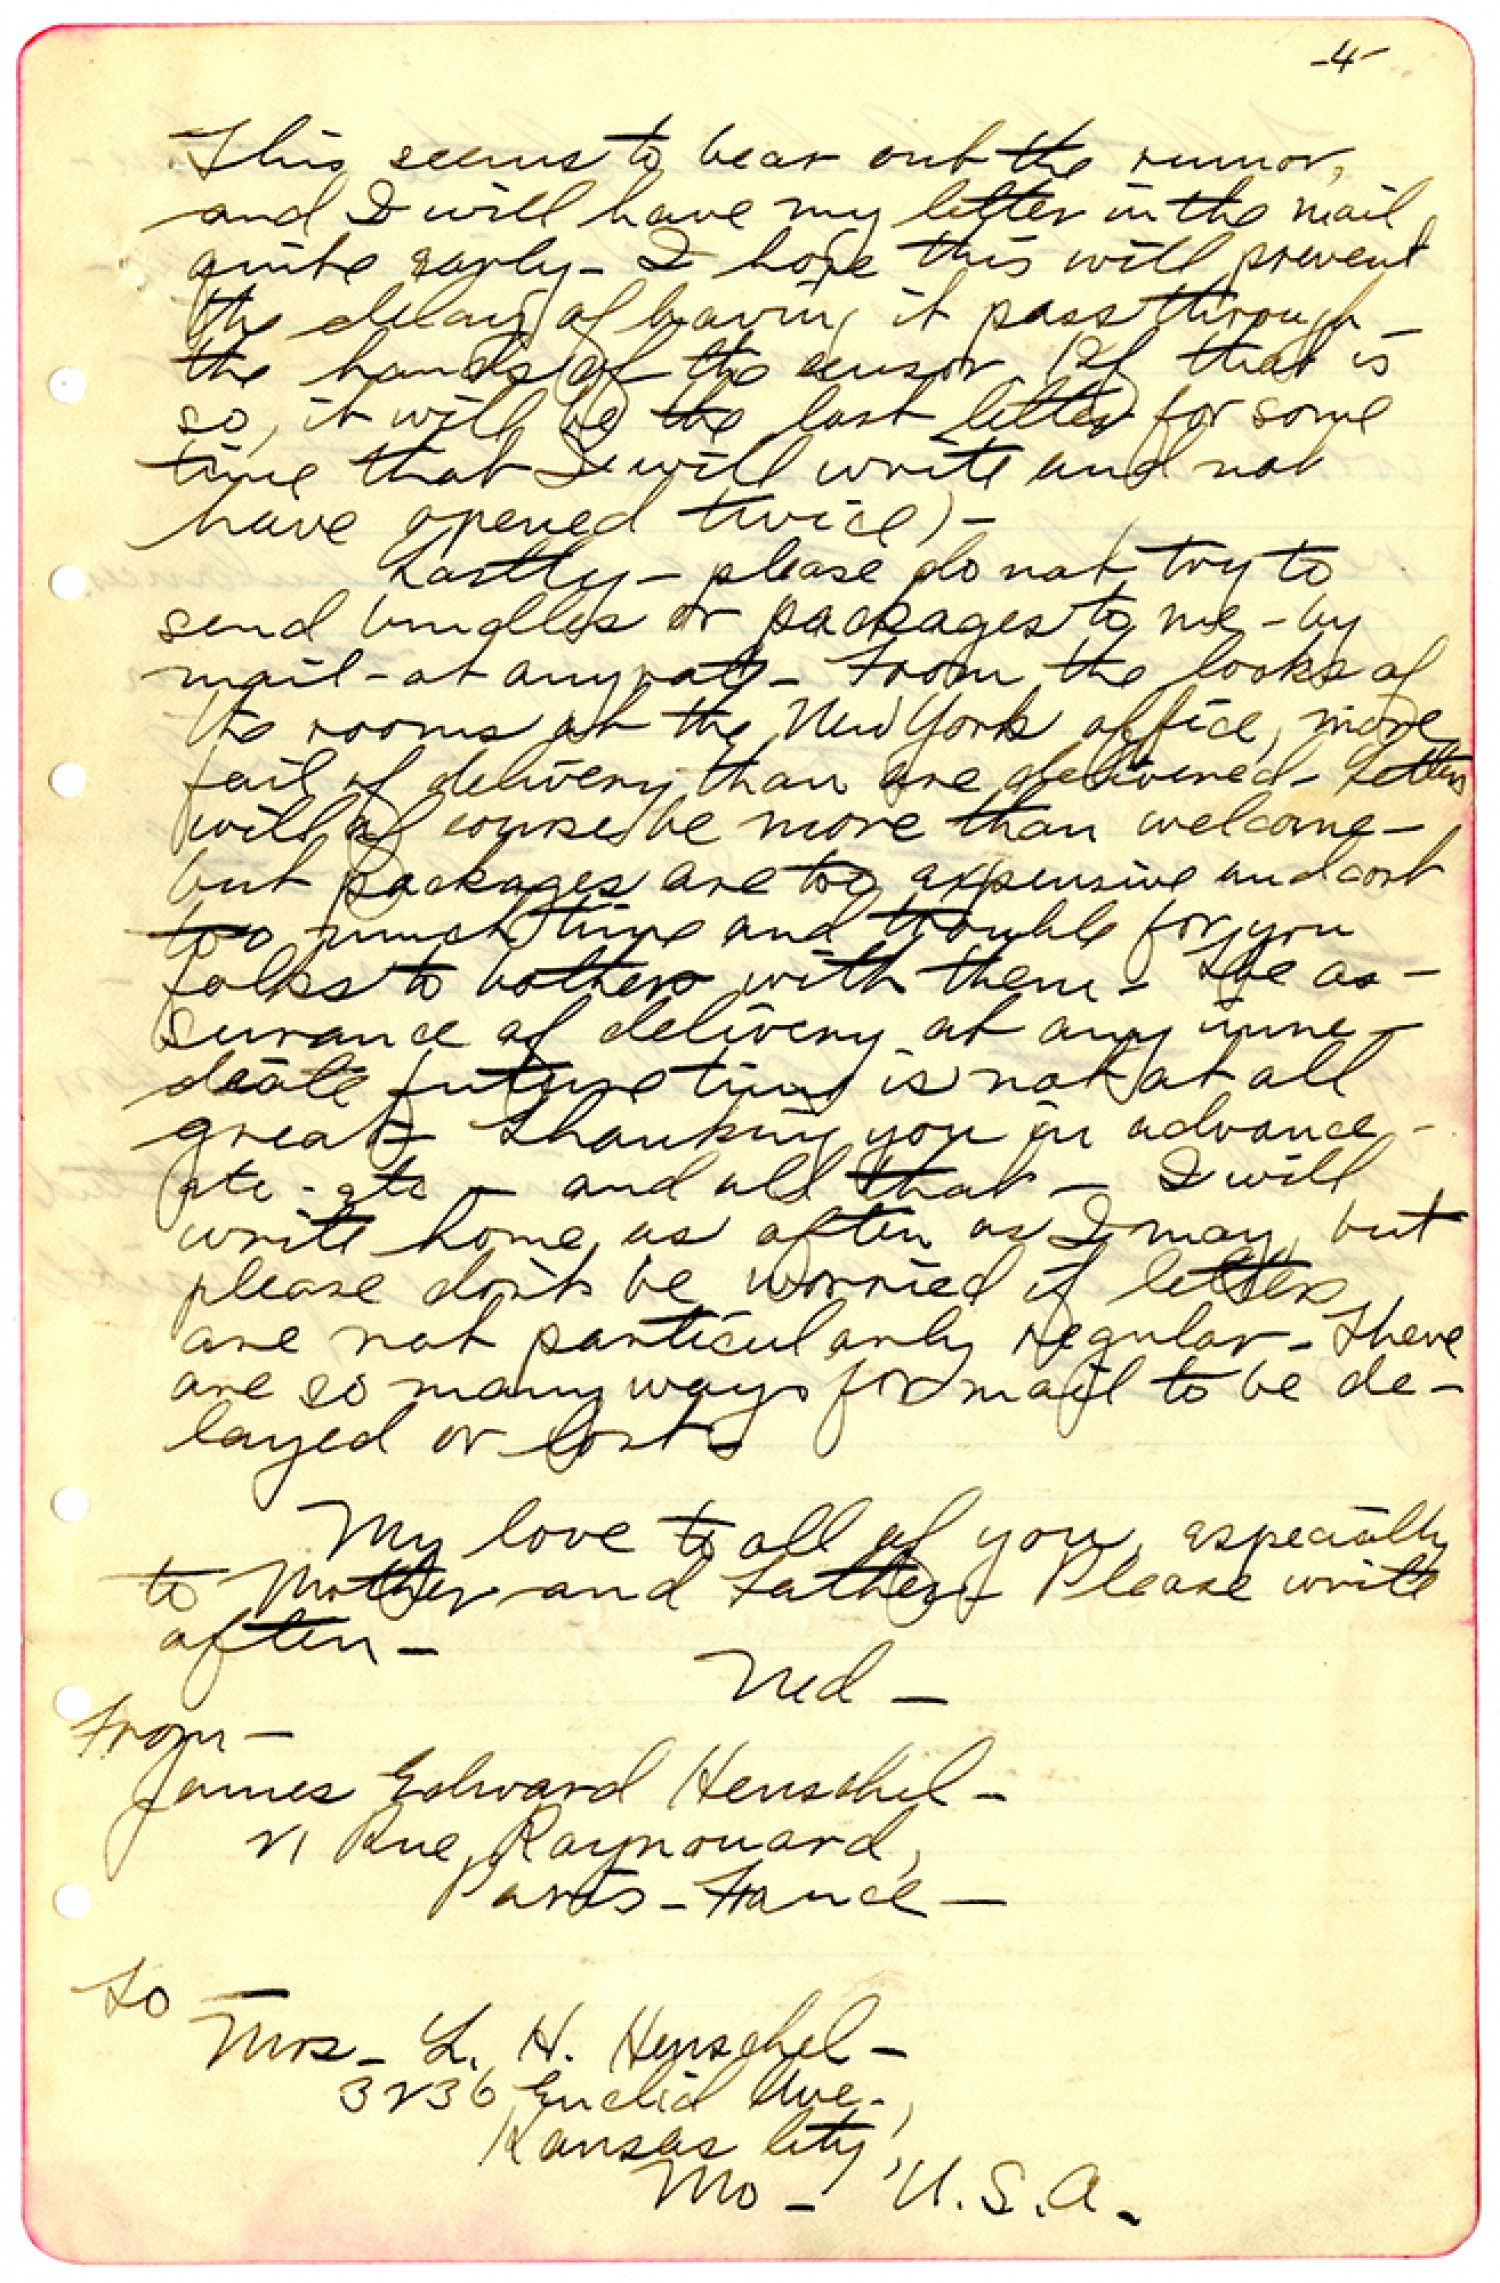 -4-
This seems to bear out the rumor,
and I will have my letter in the mail
quite early - I hope this will prevent
the delay of having it pass through
the hands of the censor (If that is
so, it will be the last letter for some
time that I will write and not
have opened twice) -
Lastly - please do not try to
send bundles or packages to me - by
mail - at any rate - From the looks of
the rooms at the New York office, more
fail of delivery than are delivered - Letters
will of course be more than welcome -
but packages are too expensive and cost
too much time and trouble for you
folks to bother with them - The as-
surance of delivery at any imme-
diate future time is not at all
great - Thanking you in advance -
etc - etc - and all that - I will
write home as often as I may, but
please don't be worried if letters
are not particularly regular - There
are so many ways for mail to be de-
layed or lost -
My love to all of you, especially
to Mother and Father - Please write
often -
Ned -
From -
James Edward Henschel -
21 Rue Raynouard,
Paris - France -
To -
Mrs - L. H. Henschel -
3236 Euclid Ave -,
Kansas City,
Mo - U.S.A. -